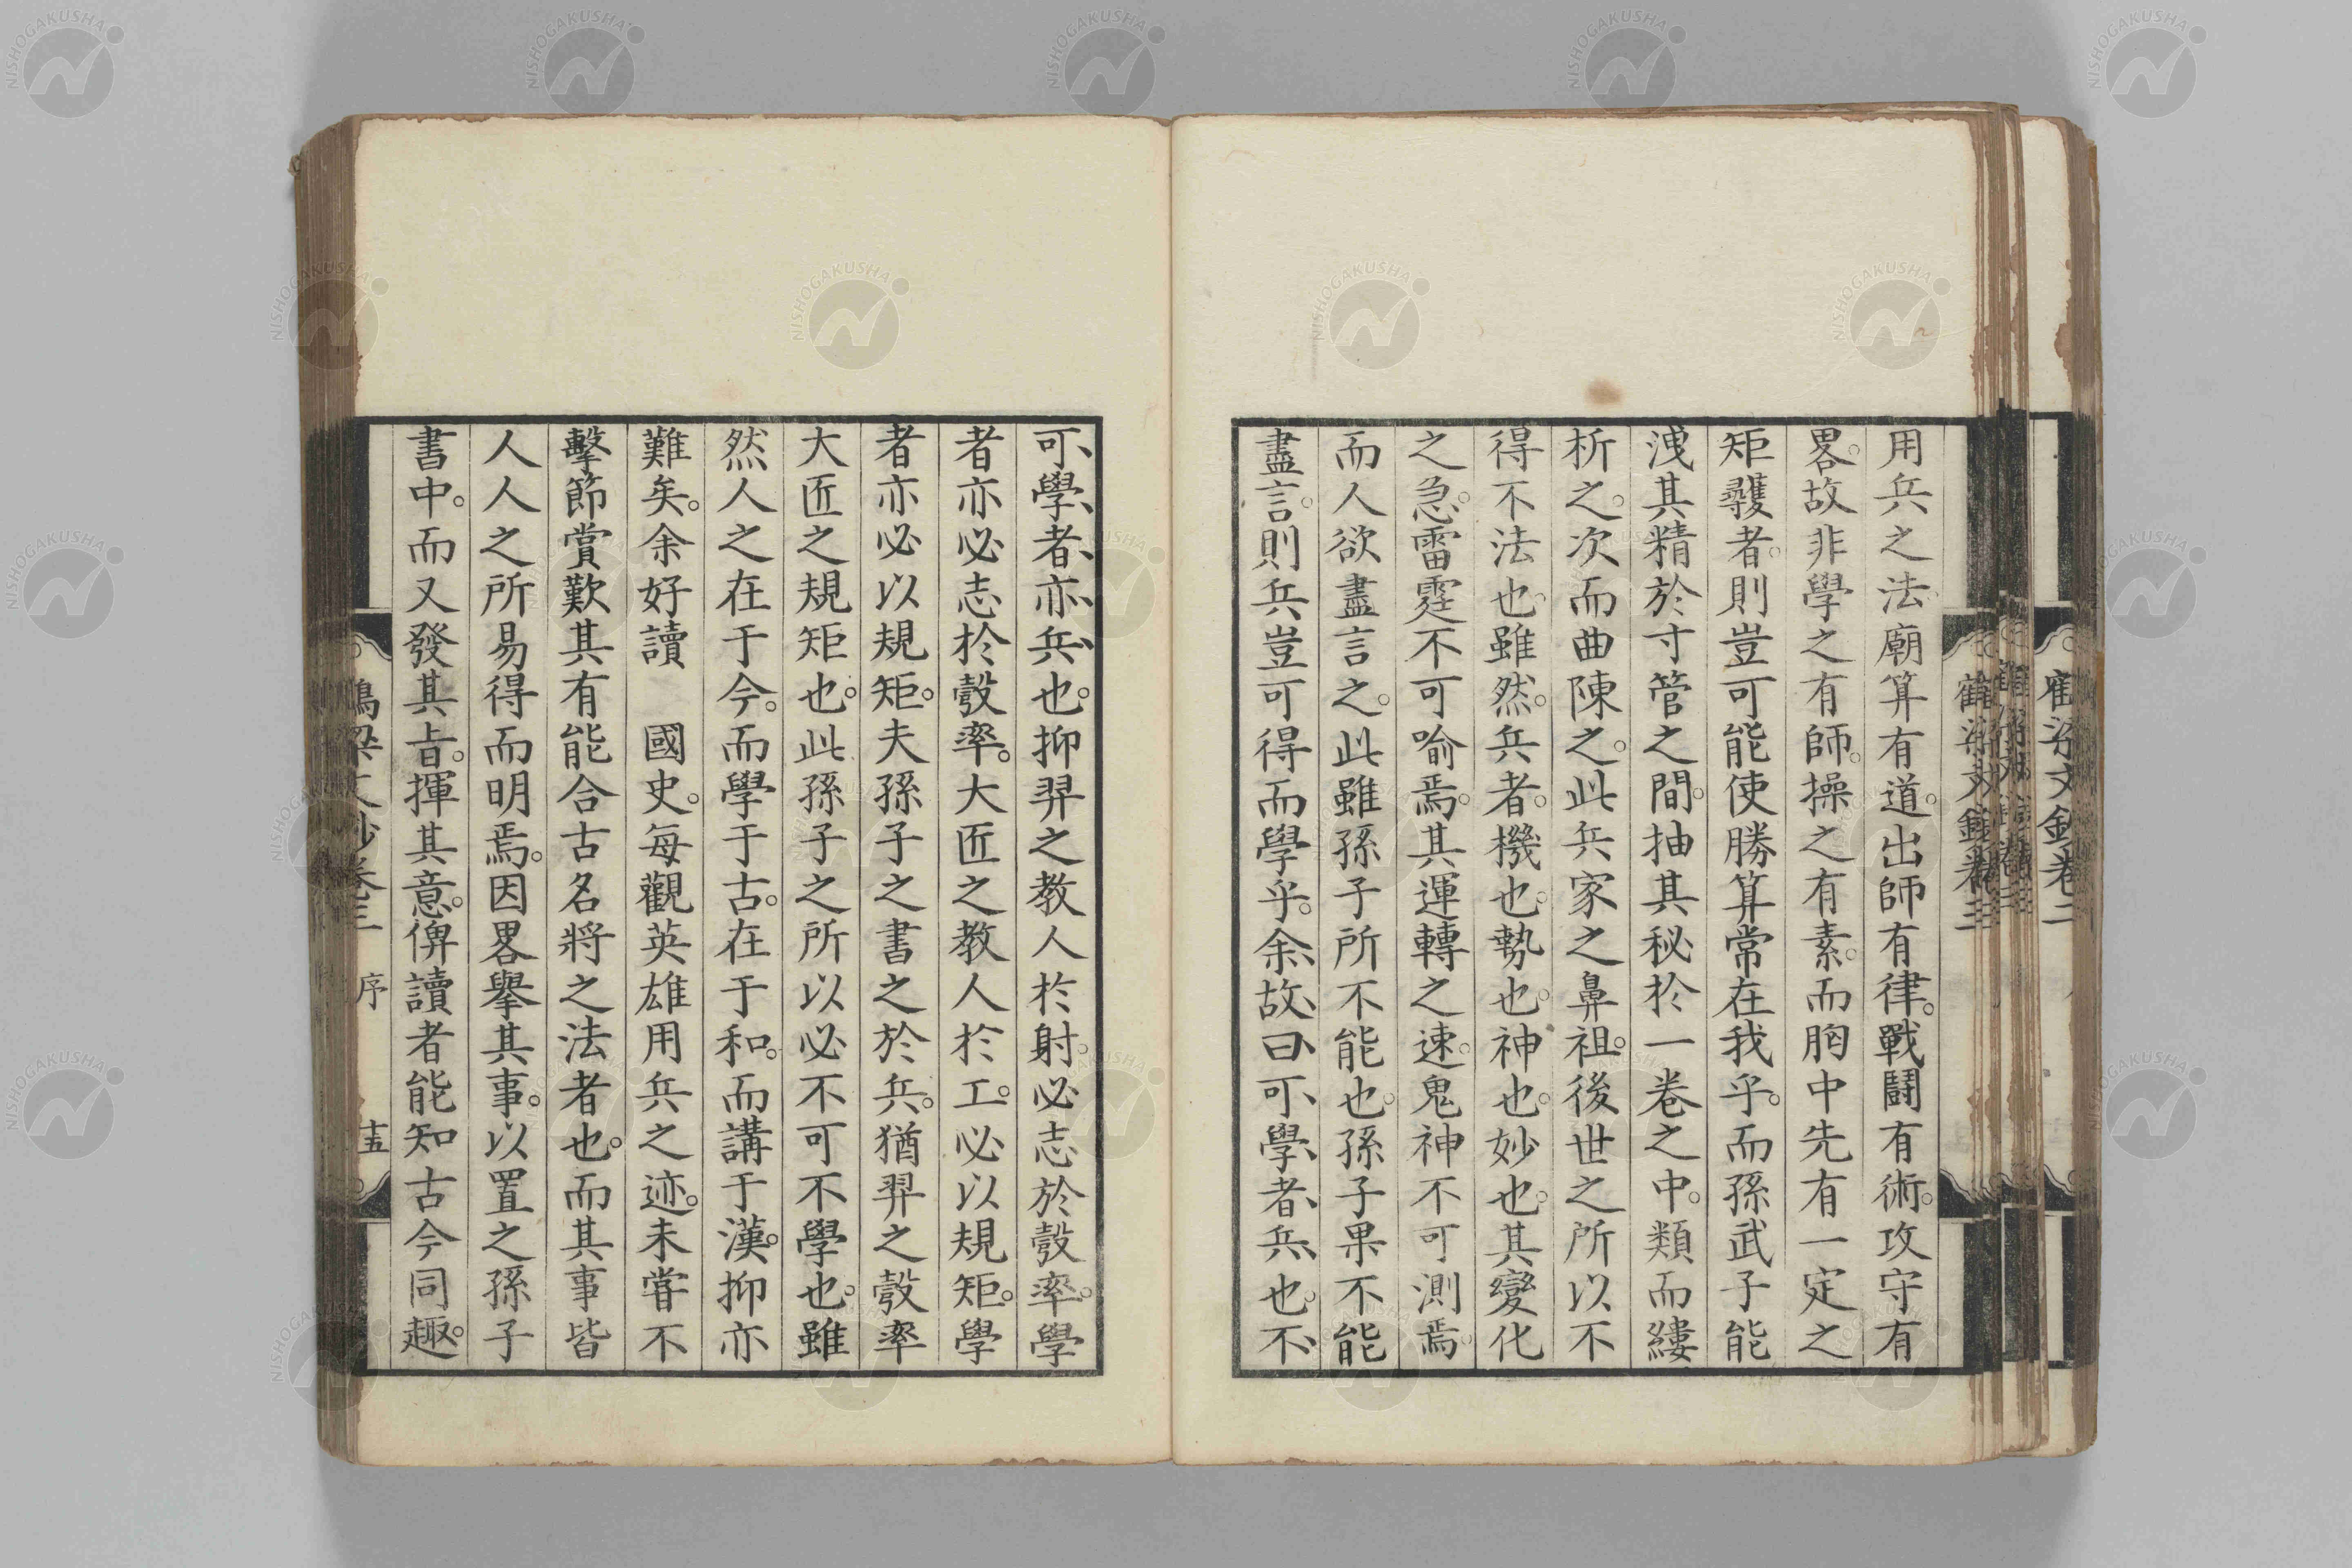 用兵之法。廟算有道。出師有律。戰鬪有術。攻守有
畧。故非學之有師。操之有素。而胸中先有一定之
矩矱者。則豈可能使勝算常在我乎。而孫武子能
洩其精於寸管之間。抽其秘於一卷之中。類而縷
析之。次而曲陳之。此兵家之鼻祖。後世之所以不
得不法也。雖然。兵者。機也。勢也。神也。妙也。其變化
之急。雷霆不可喻焉。其運轉之速。鬼神不可測焉。
而人欲盡言之。此雖孫子所不能也。孫子果不能
盡言。則兵豈可得而學乎。余、故、曰、可、學、者、兵、也。不、
可、學、者、亦、兵、也。抑羿之教人於射。必志於彀率。學
者亦必志於彀率。大匠之教人於工。必以規矩。學
者亦必以規矩。夫孫子之書之於兵。猶羿之彀率
大匠之規矩也。此孫子之所以必不可不學也。雖
然人之在于今。而學于古。在于和。而講于漢。抑亦
難矣。余好讀　國史。每觀英雄用兵之迹。未嘗不
擊節賞歎其有能合古名將之法者也。而其事皆
人人之所易得而明焉。因畧擧其事。以置之孫子
書中。而又發其旨。揮其意。俾讀者能知古今同趣。
鶴梁文鈔卷三　序　十五
鶴梁文鈔卷三
鶴梁文鈔卷二
NISHOGAKUSHA